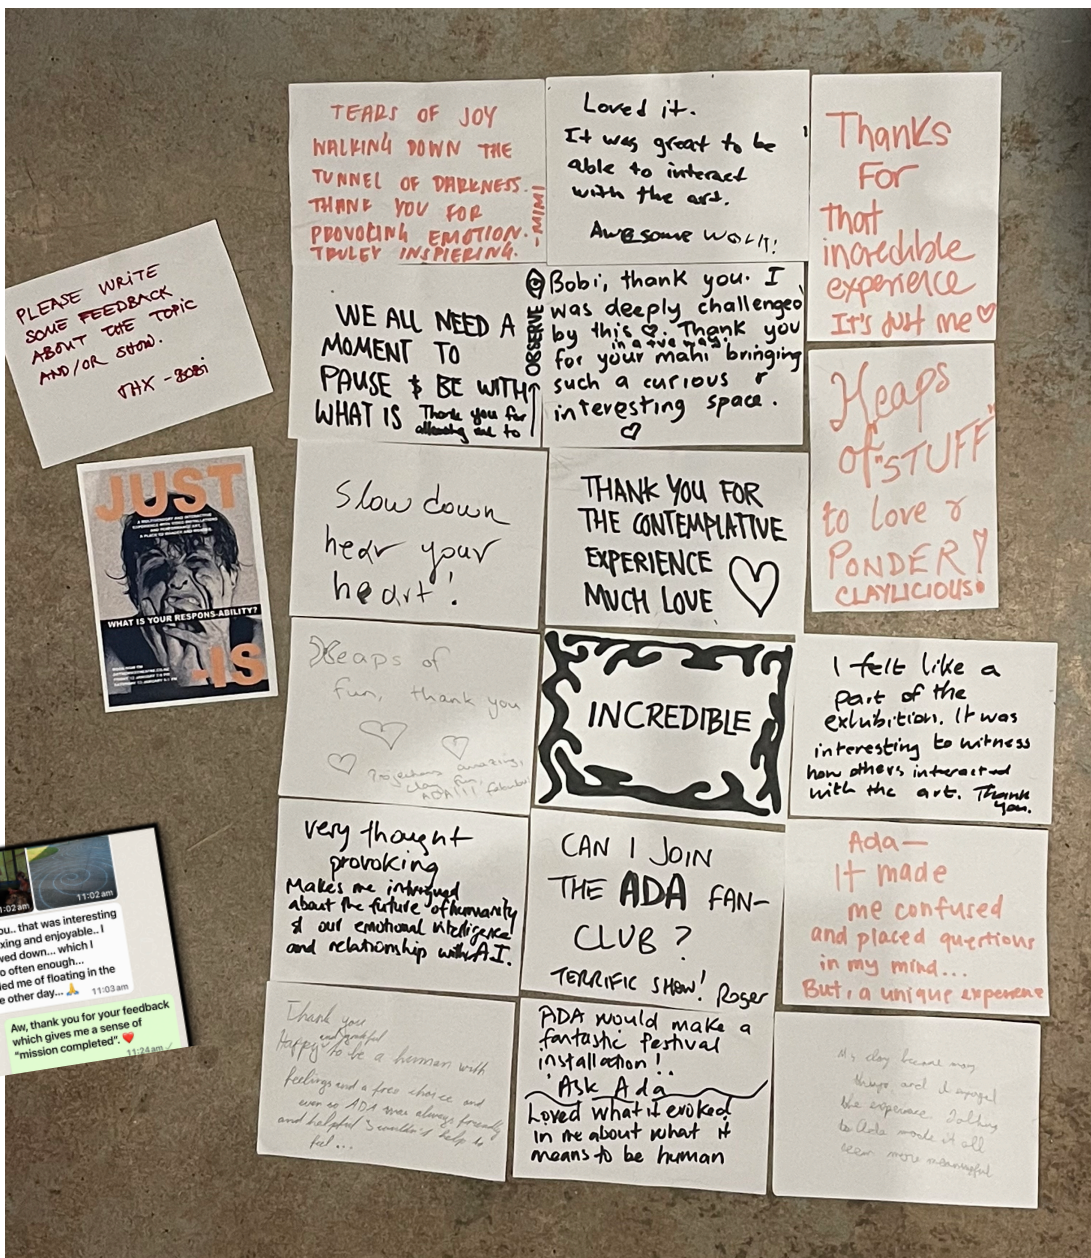 PLEASE WRITE
SOME FEEDBACK
ABOUT THE TOPIC
AND/OR SHOW.
THX - BOBi
JUST
A MULTISENSORY AND INTERACTIVE
EXPERIENCE WITH VIDEO INSTALLATIONS
AND PERFORMANCE ART.
A PLACE TO WONDER AND WANDER
WHAT IS YOUR RESPONS-ABILITY?
-IS
11:02 am
11:02 am
ou.. that was interesting
xing and enjoyable.. I
wed down... which I
o often enough...
ed me of floating in the
e other day... 🙏 11:03 am
Aw, thank you for your feedback
which gives me a sense of
"mission completed". ❤️
11:24 am
TEARS OF JOY
WALKING DOWN THE
TUNNEL OF DARKNESS.
THANK YOU FOR
PROVOCING EMOTION.
TRULEY INSPIERING.
-MIMI
Loved it.
It was great to be
able to interact
with the art.
Awesome WORK!
Thanks
For
that
incredible
experience
It's Just me ♡
WE ALL NEED A
MOMENT TO
PAUSE & BE WITH
WHAT IS Thank you for
allowing me to
OBSERVE
Bobi, thank you. I
was deeply challenged
by this ♡. Thank you
in a +ve way.
for your mahi bringing
such a curious &
interesting space.
♡
Heaps
of "STUFF"
to love &
PONDER!
CLAYLICIOUS!
Slow down
hear your
heart!
THANK YOU FOR
THE CONTEMPLATIVE
EXPERIENCE
MUCH LOVE ♡
Heaps of
fun, thank you
Projections amazing,
clay fun,
ADA!!!
INCREDIBLE
I felt like a
part of the
exhubition. It was
interesting to witness
how others interacted
with the art. Thank
you.
very thought
provoking
Makes me intrigued
about the future of humanity
& our emotional intelligence
and relationship with A.I.
CAN I JOIN
THE ADA FAN-
CLUB?
TERRIFIC SHOW! Roger
Ada—
It made
me confused
and placed quertions
in my mind...
But, a unique experience
Thank you
and grateful
Happy to be a human with
feelings and a free choice and
even so ADA was always friendly
and helpful I couldn't help to
feel...
ADA would make a
fantastic festival
installation!
'Ask Ada
Loved what it evoked
in me about what it
means to be human
My clay became many
things and I enjoyed
the experience. Talking
to Ada made it all
seem more meaningful